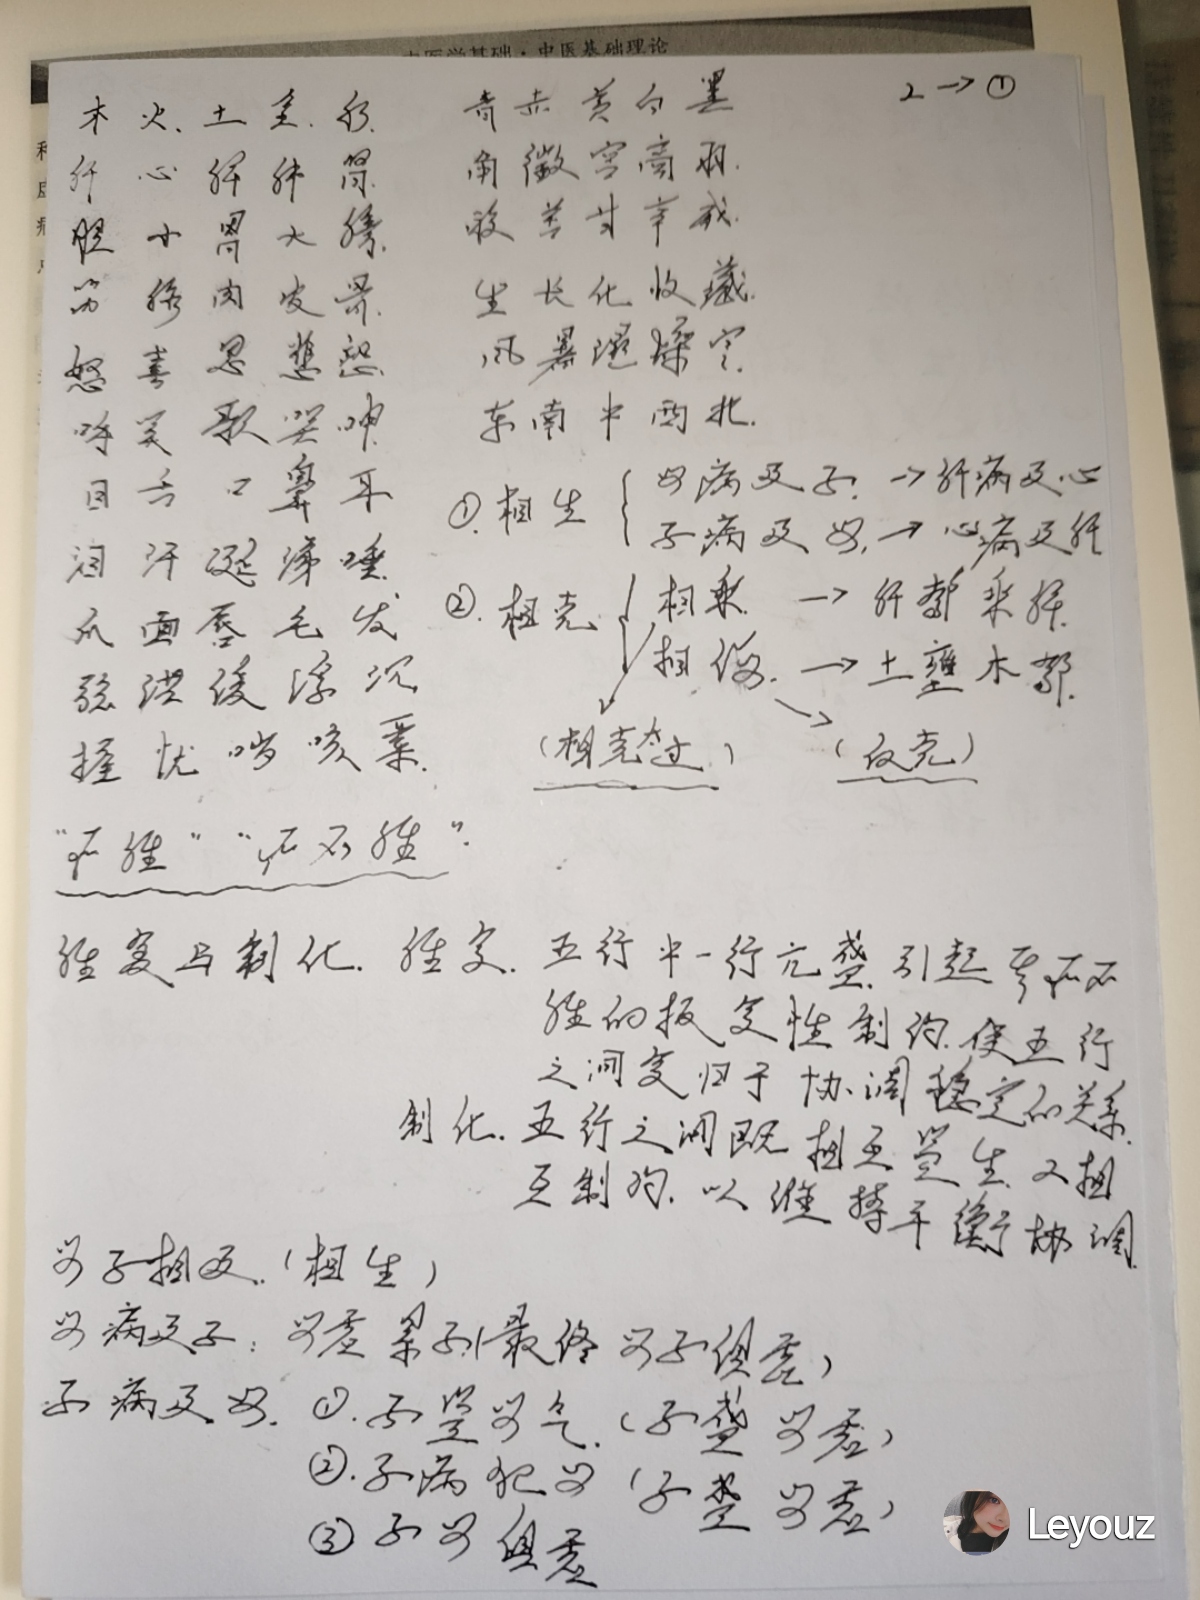 中医学基础·中医基础理论
2→①
木 火 土 金 水
肝 心 脾 肺 肾
胆 小 胃 大 膀
筋 肠 肉 皮 骨
怒 喜 思 悲 恐
呼 笑 歌 哭 呻
目 舌 口 鼻 耳
泪 汗 涎 涕 唾
爪 面 唇 毛 发
弦 洪 缓 浮 沉
握 忧 哕 咳 栗
青 赤 黄 白 黑
角 徵 宫 商 羽
酸 苦 甘 辛 咸
生 长 化 收 藏
风 暑 湿 燥 寒
东 南 中 西 北
①.相生 { 母病及子.→肝病及心
子病及母.→心病及肝
②.相克 { 相乘.→肝郁乘脾.
相侮.→土壅木郁.
(相克太过) (反克)
"所胜" "所不胜".
胜复与制化. 胜复. 五行中一行亢盛.引起其所不
胜的报复性制约.使五行
之间复归于协调稳定的关系.
制化.五行之间既相互资生.又相
互制约.以维持平衡协调.
母子相及.(相生)
母病及子:母虚累子(最终母子俱虚)
子病及母.①.子盗母气.(子盛母虚)
②.子病犯母(子盛母虚)
③子母俱虚
Leyouz